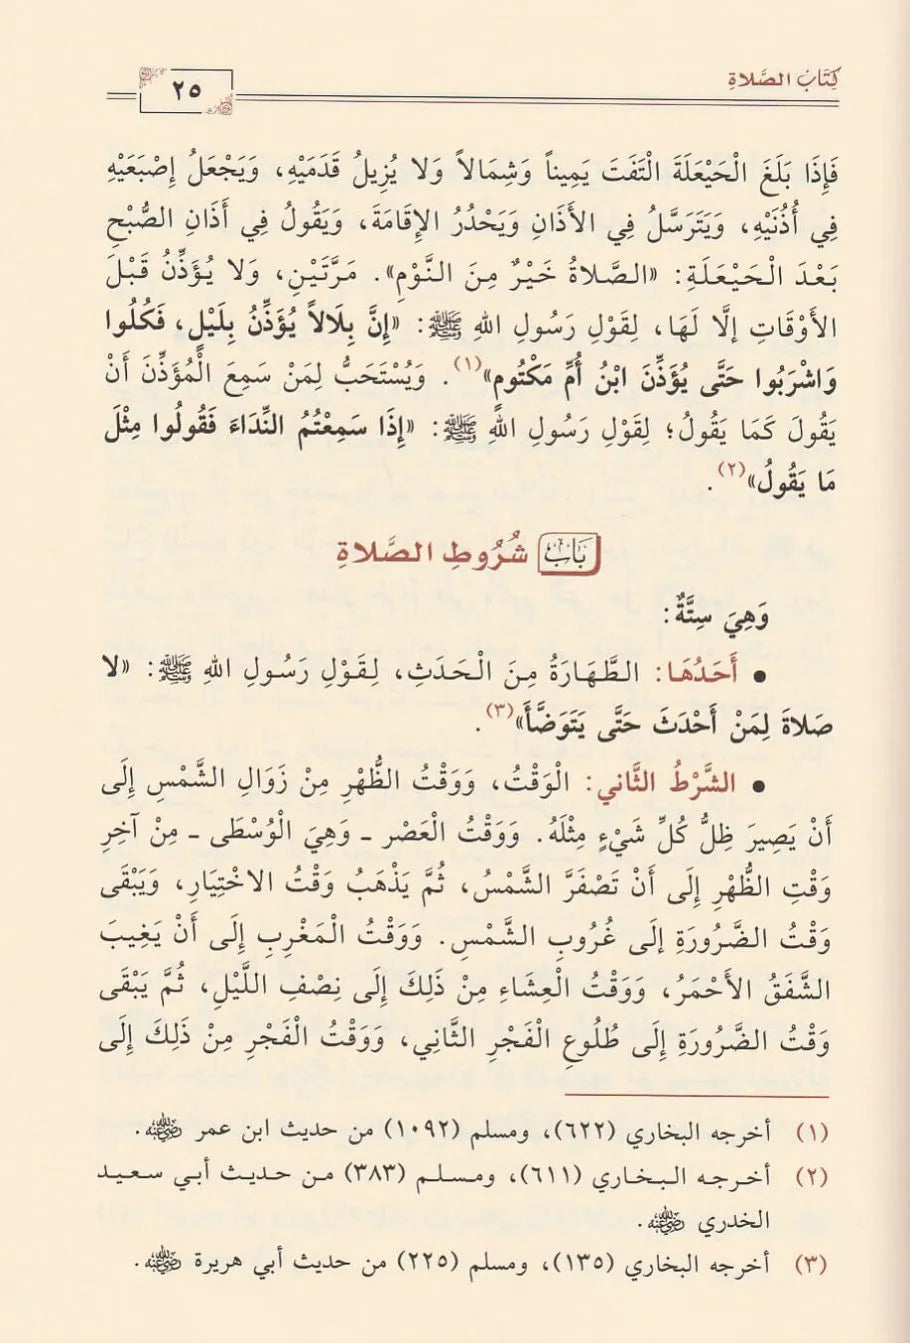 كِتَابُ الصَّلَاةِ
٢٥
فَإِذَا بَلَغَ الْحَيْعَلَةَ الْتَفَتَ يَمِيناً وَشِمَالاً وَلا يُزِيلُ قَدَمَيْهِ، وَيَجْعَلُ إِصْبَعَيْهِ
فِي أُذُنَيْهِ، وَيَتَرَسَّلُ فِي الأَذَانِ وَيَحْدُرُ الإِقَامَةَ، وَيَقُولُ فِي أَذَانِ الصُّبْحِ
بَعْدَ الْحَيْعَلَةِ: «الصَّلاةُ خَيْرٌ مِنَ النَّوْمِ». مَرَّتَيْنِ، وَلا يُؤَذِّنُ قَبْلَ
الأَوْقَاتِ إلَّا لَهَا، لِقَوْلِ رَسُولِ اللهِ ﷺ: «إِنَّ بِلَالاً يُؤَذِّنُ بِلَيْلٍ، فَكُلُوا
وَاشْرَبُوا حَتَّى يُؤَذِّنَ ابْنُ أُمِّ مَكْتُومٍ»(١). وَيُسْتَحَبُّ لِمَنْ سَمِعَ الْمُؤَذِّنَ أَنْ
يَقُولَ كَمَا يَقُولُ؛ لِقَوْلِ رَسُولِ اللهِ ﷺ: «إِذَا سَمِعْتُمُ النِّدَاءَ فَقُولُوا مِثْلَ
مَا يَقُولُ»(٢).
بَابُ شُرُوطِ الصَّلاةِ
وَهِيَ سِتَّةٌ:
• أَحَدُهَا: الطَّهَارَةُ مِنَ الْحَدَثِ، لِقَوْلِ رَسُولِ اللهِ ﷺ: «لا
صَلاةَ لِمَنْ أَحْدَثَ حَتَّى يَتَوَضَّأَ»(٣).
• الشَّرْطُ الثَّاني: الْوَقْتُ، وَوَقْتُ الظُّهْرِ مِنْ زَوَالِ الشَّمْسِ إِلَى
أَنْ يَصِيرَ ظِلُّ كُلِّ شَيْءٍ مِثْلَهُ. وَوَقْتُ الْعَصْر ـ وَهِيَ الْوُسْطَى ـ مِنْ آخِرِ
وَقْتِ الظُّهْرِ إِلَى أَنْ تَصْفَرَّ الشَّمْسُ، ثُمَّ يَذْهَبُ وَقْتُ الاخْتِيَارِ، وَيَبْقَى
وَقْتُ الضَّرُورَةِ إلَى غُرُوبِ الشَّمْسِ. وَوَقْتُ الْمَغْرِبِ إِلَى أَنْ يَغِيبَ
الشَّفَقُ الأَحْمَرُ، وَوَقْتُ الْعِشَاءِ مِنْ ذَلِكَ إِلَى نِصْفِ اللَّيْلِ، ثُمَّ يَبْقَى
وَقْتُ الضَّرُورَةِ إِلَى طُلُوعِ الْفَجْرِ الثَّانِي، وَوَقْتُ الْفَجْرِ مِنْ ذَلِكَ إِلَى
(١) أخرجه البخاري (٦٢٢)، ومسلم (١٠٩٢) من حديث ابن عمر رضي الله عنه.
(٢) أخرجه البخاري (٦١١)، ومسلم (٣٨٣) من حديث أبي سعيد
الخدري رضي الله عنه.
(٣) أخرجه البخاري (١٣٥)، ومسلم (٢٢٥) من حديث أبي هريرة رضي الله عنه.